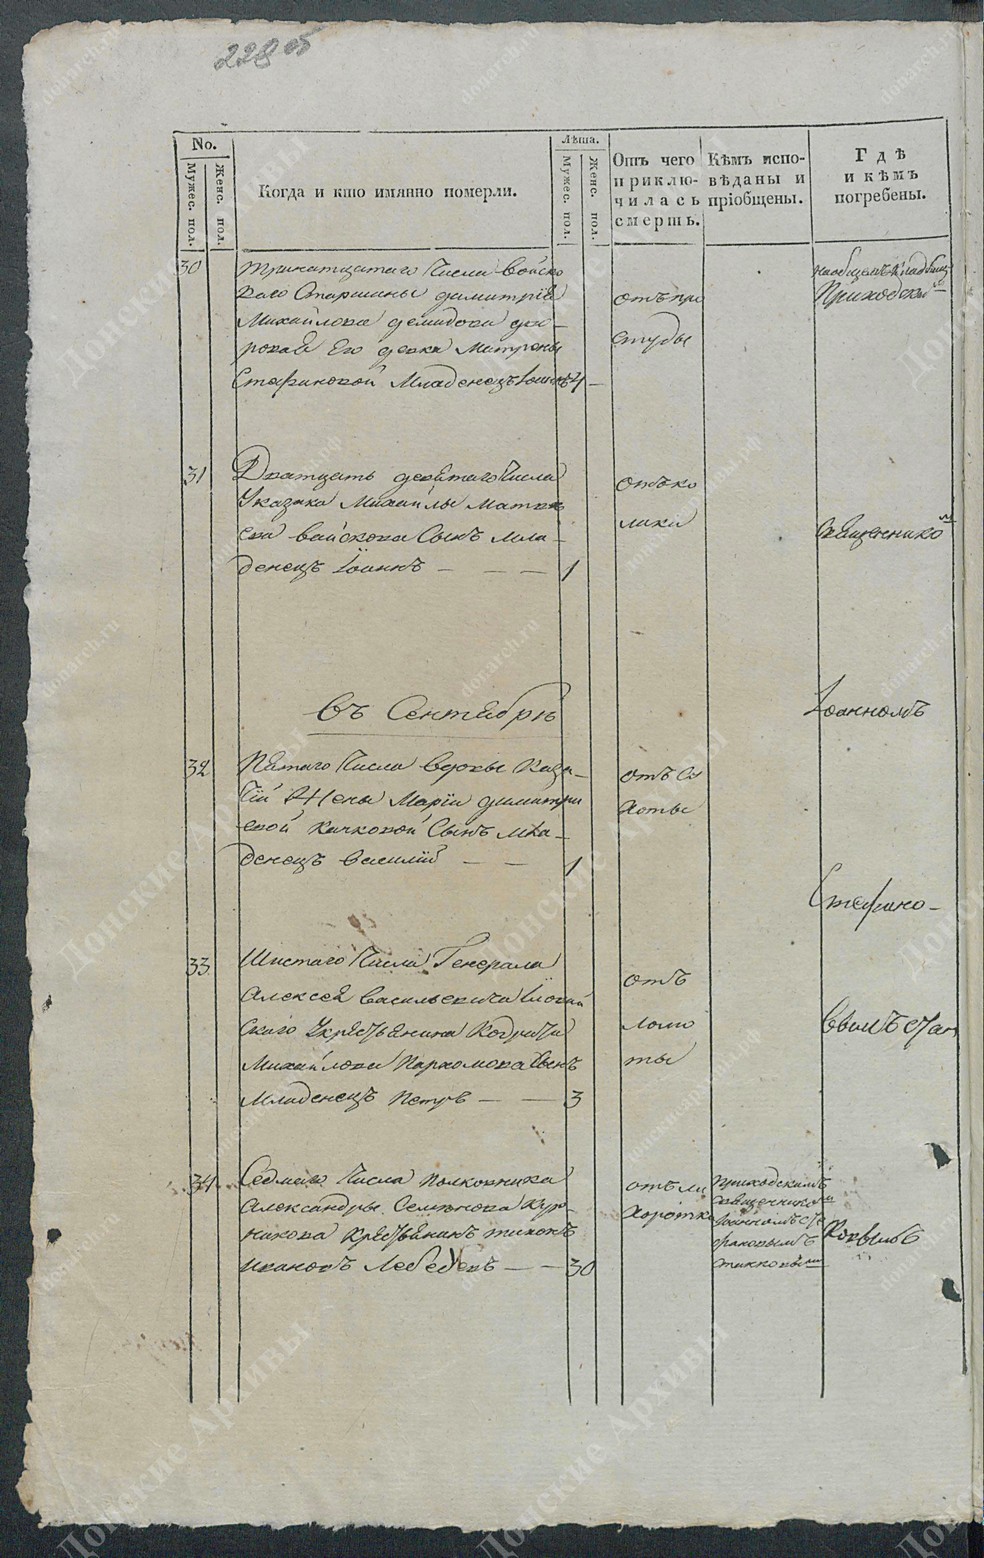 228 об
No.
Мужес. пол.
Женс. пол.
Когда и кто имянно померли.
Лѣта.
Мужес. пол.
Женс. пол.
Отъ чего
приклю-
чилась
смерть.
Кѣмъ испо-
вѣданы и
пріобщены.
Гдѣ
и кѣмъ
погребены.
30
Тринатцатаго Числа войско
ваго Старшины димитрія
Михайлова демидова дво-
роваѣ Его девка Матрены
Стефановой Младенецъ
4
отъ про
студы
на общемъ кладбищѣ
Приходским
31
Дватцать девѣтаго Числа
Указака Михайлы Матвѣ
ева вайскова Сынъ мла-
денецъ Іоаннъ
1
отъ ко
лики
Священнико
въ Сентябрѣ
Іоанномъ
32
Пѣтаго Числа вдовы каза-
чій Жены Маріи димитри
евой Качковой Сынъ мла-
денецъ василій
1
отъ су
хоты
Стефано-
33
Шистаго Числа Генерала
Алексея васильевича Иловай
скаго Укрестьянина
Михайлова Пархомова Сынъ
Младенецъ Петръ
3
отъ
ломо
ты
34
Седмаго Числа полковника
Александры Семенова Кут-
никова крестьянинъ тихонъ
ивановъ Лебедевъ
30
отъ ли
хоротки
приходскимъ
священником
іоанномъ сте
фановымъ
ковымъ